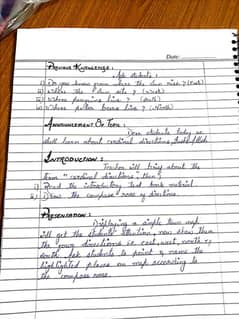 Date:
PREVIOUS KNOWLEDGE:
Ask students:
i) Do you know from where the sun rise? (East)
ii) Where the sun sets? (West)
iii) Where penguins live? (South)
iv) Where polar bears live? (North)
ANNOUNCEMENT OF TOPIC:
Dear students today we
shall learn about cardinal directions
INTRODUCTION:
Teacher will tell about the
term "cardinal directions" then;
i) Read the introductory text book material.
ii) Draw the compass rose of directions.
PRESENTATION:
Displaying a simple town map
will get the students attention, now show them
the four directions i.e east, west, north &
south. Ask students to point & name the
highlighted places on map according to
the compass rose.